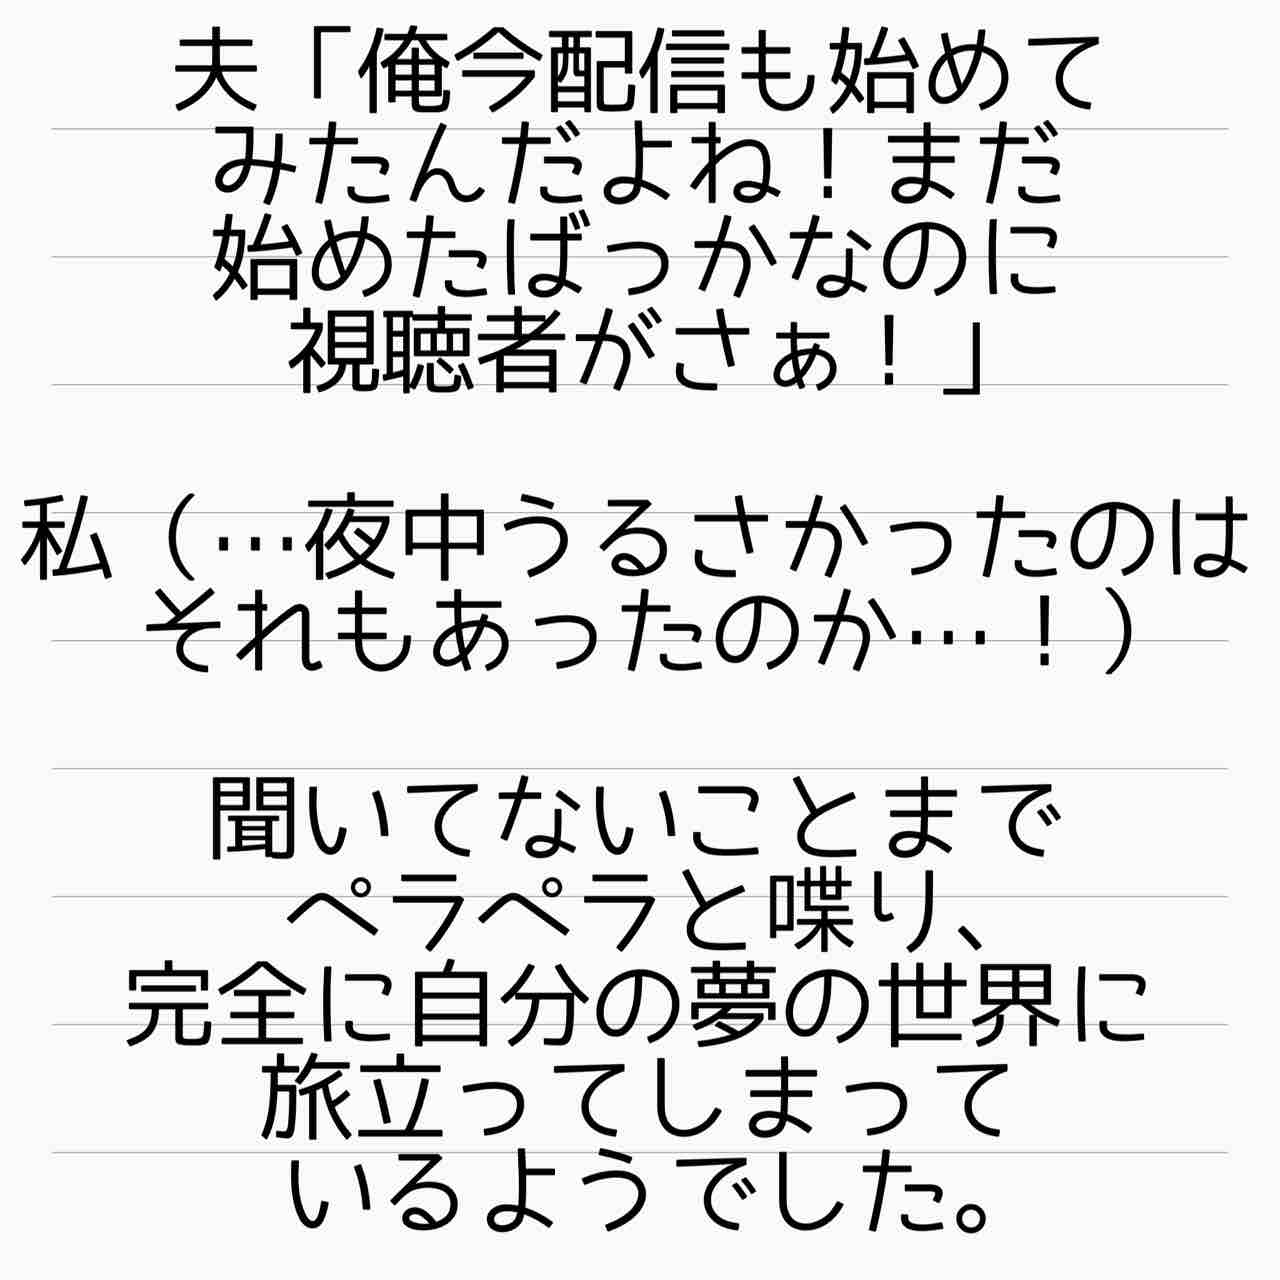 夫「俺今配信も始めて
みたんだよね！まだ
始めたばっかなのに
視聴者がさぁ！」
私（…夜中うるさかったのは
それもあったのか…！）
聞いてないことまで
ペラペラと喋り、
完全に自分の夢の世界に
旅立ってしまって
いるようでした。